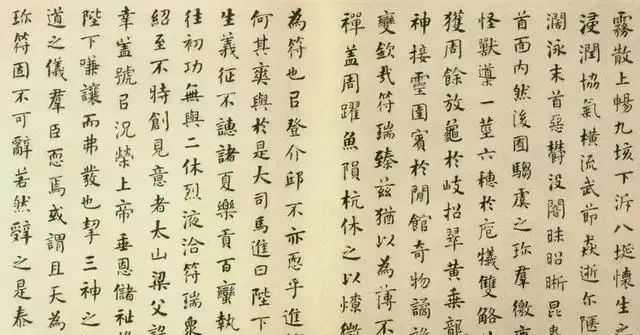 霧散上暢九垓下泝八埏懷生
浸潤協氣橫流武節猋逝尔陿
濶泳末首惡鬱没闇昧昭晰昆
首面内然後囿騶虞之珎羣徼
怪獸導一莖六穗於庖犧雙觡
獲周餘放龜於岐招翠黄乗龍
神接靈圉賓於閒館奇物譎
變欽哉符瑞臻兹猶以為薄不
禪盖周躍魚隕杭休之以燎
為符也㠯登介邱不亦恧乎進
何其爽與於是大司馬進曰陛下
生義征不譓諸夏樂貢百蠻執
往初功無與二休烈液洽符瑞衆
紹至不特創見意者太山梁父
幸盖號㠯况榮上帝垂恩儲祉
陛下嗛讓而弗發也挈三神之
道之儀羣臣恧焉或謂且天為
珎符固不可辭若然辤之是泰